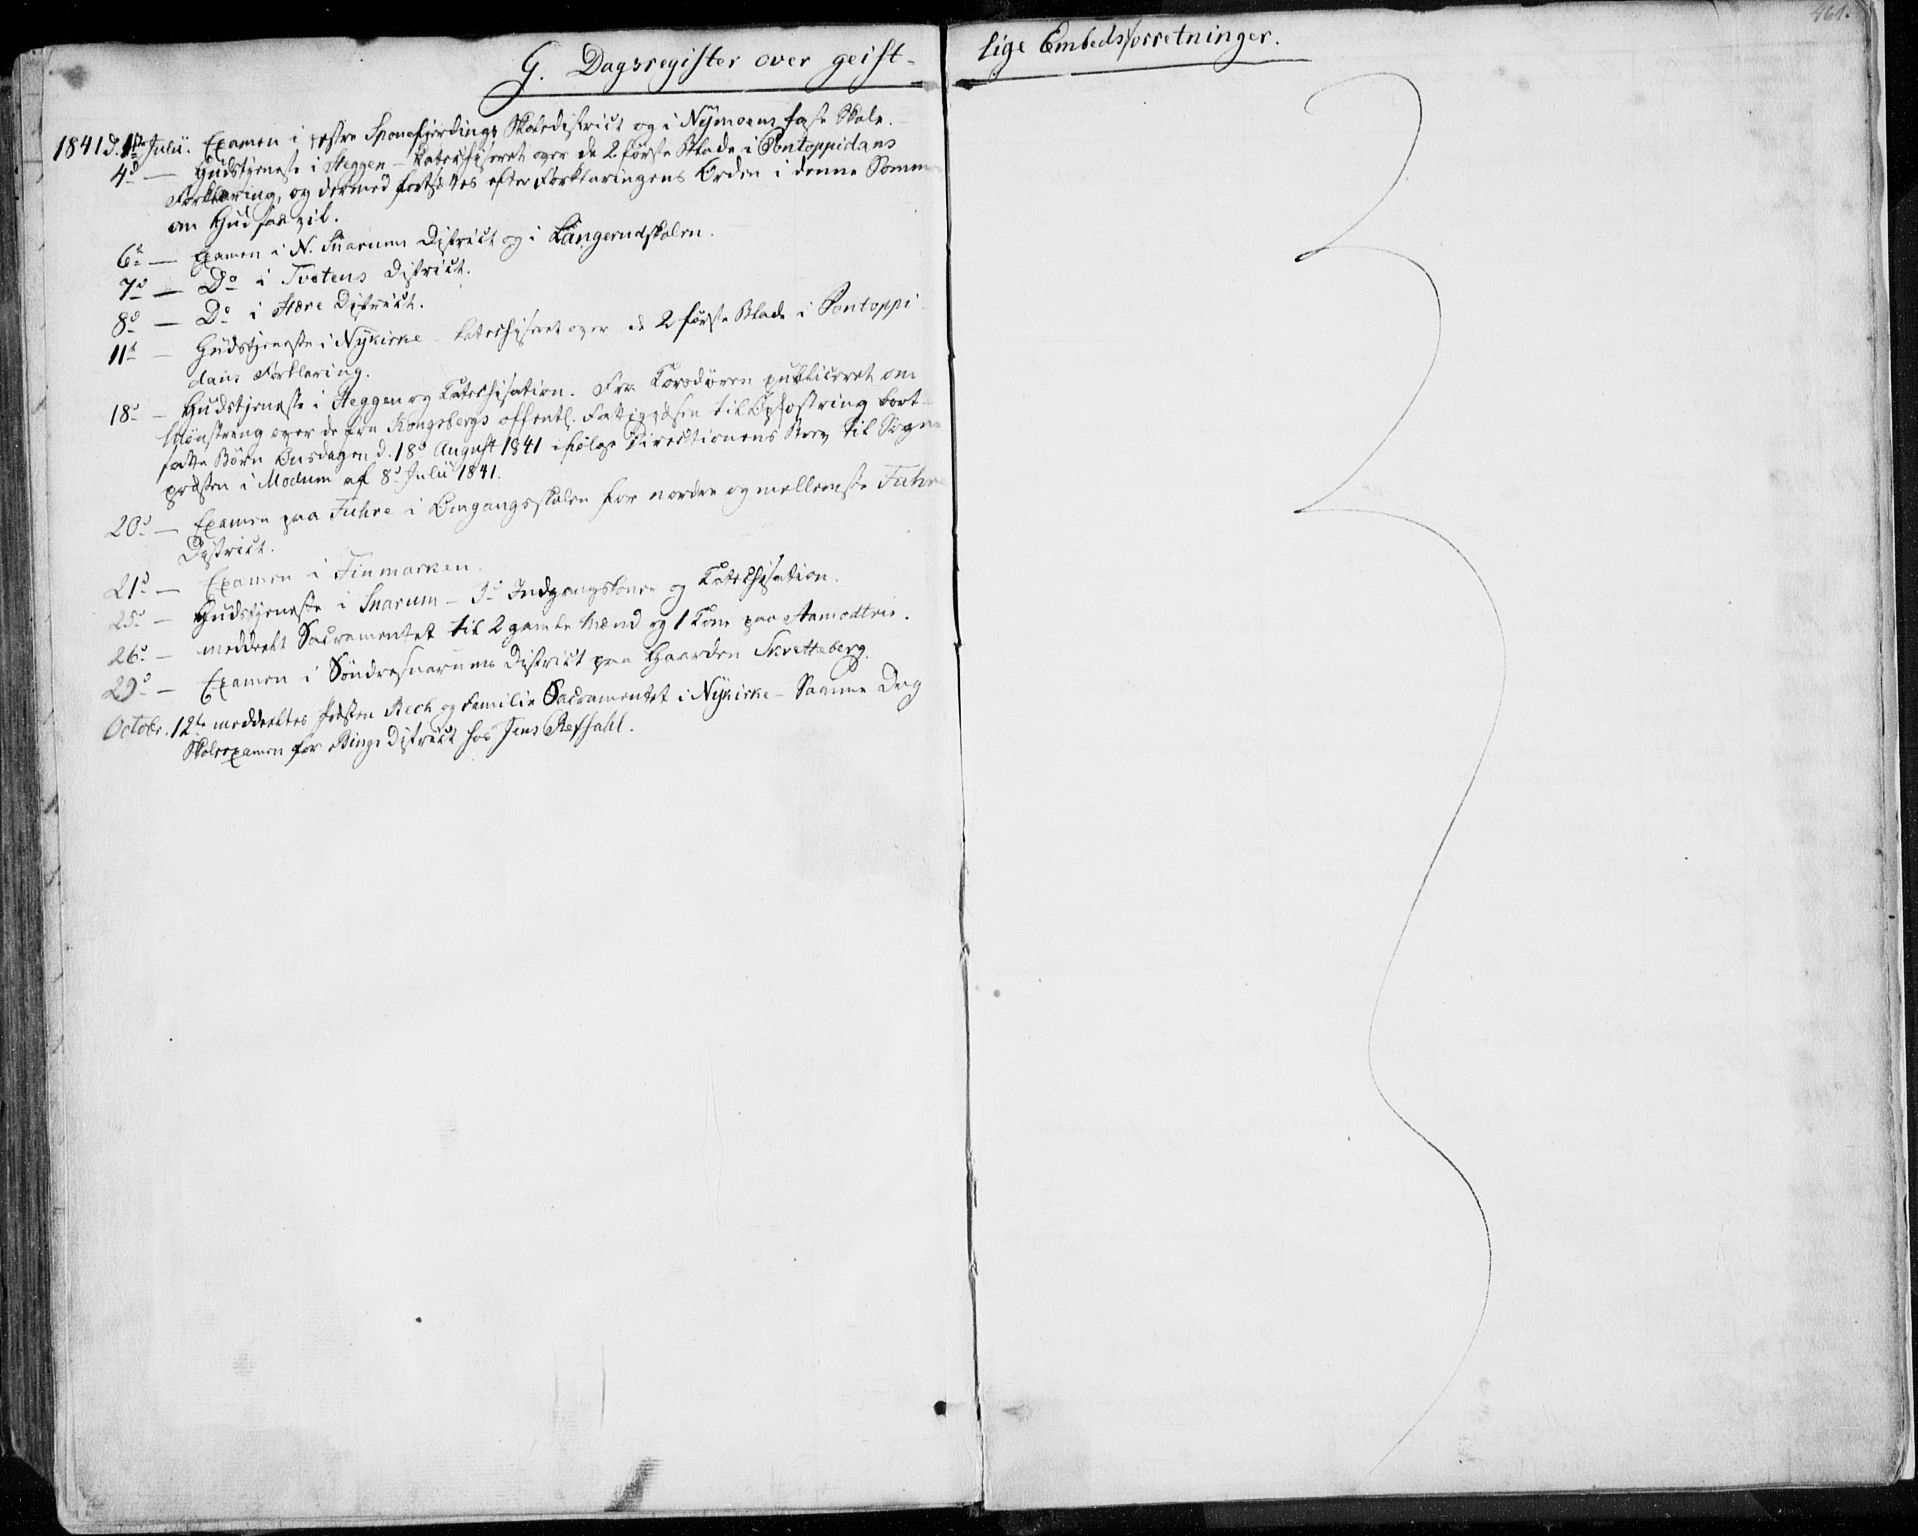 461.
G. Dagsregister over geist-
lige Embedsforretninger.
1841 d. 1ste Julii. Examen i vestre Sponefjerdings Skoledistrict og i Nÿmoens faste Skole.
4d — Gudstjeneste i Heggen – katechiseret over de 2 første Blade i Pontoppidans
Forklaring, og dermed fortsættes efter Forklaringens Orden i denne Sommer
om Gud saa vil.
6te — Examen i N. Snarums District og i Langerudskolen.
7d — Do i Tvetens District.
8d — Do i Hære District.
11te — Gudstjeneste i Nykirke – katechiseret over de 2 første Blade i Pontoppi
dans Forklaring.
18d — Gudstjeneste i Heggen og Catechisation. Fra Cordøren publiceret om
Mønstring over de fra Kongsbergs offentl. Fattigvæsen til Opfostring bort-
satte Børn Onsdagen d. 18d August 1841 ifølge Directionens Brev til Sogne
præsten i Modum af 8d Julii 1841.
20d — Examen paa Fuhre i Omgangsskolen for nordre og mellemste Fuhre
District.
21d — Examen i Finmarken.
25d — Gudstjeneste i Snarum – Indgangskone og Catechisation.
26d — meddeelt Sacramentet til 2 gamle Mænd og 1 Kone paa Aamodtvis.
29d — Examen i Søndresnarums District paa Gaarden Skretteberg.
Octobr. 12te meddeeltes Præsten Bech og Familie Sacramentet i Nykirke – Samme Dag
Skoleexamen for Bings District hos Jens Refsahl.